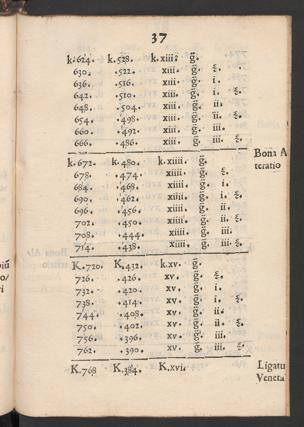 37
k. 624. k. 528. k. xiii. g.
630. .522. xiii. g. ξ.
636. .516. xiii. g. i.
642. .510. xiii. g. i. ξ.
648. .504. xiii. g. ii.
654. .498. xiii. g. ii. ξ.
660. .492. xiii. g. iii.
666. .486. xiii. g. iii. ξ.
Bona A
k. 672. k. 480. k. xiiii. g.
teratio
678. .474. xiiii. g. ξ.
684. .468. xiiii. g. i.
690. .462. xiiii. g. i. ξ.
696. .456. xiiii. g. ii.
702. .450. xiiii. g. ii. ξ.
708. .444. xiiii. g. iii.
714. .438. xiiii. g. iii. ξ.
K. 720. K. 432. k. xv. g.
726. .426. xv. g. ξ.
732. .420. xv. g. i.
738. .414. xv. g. i. ξ.
744. .408. xv. g. ii.
750. .402. xv. g. ii. ξ.
756. .396. xv. g. iii.
762. .390. xv. g. iii. ξ.
K. 768 K. 384. K. xvi.
Ligatu
Veneta